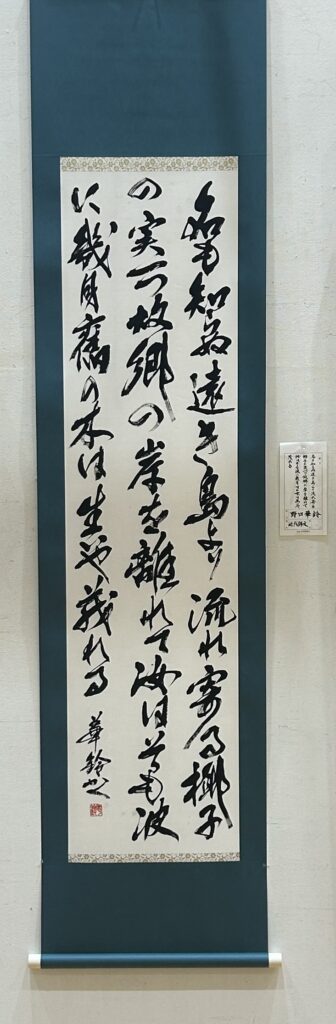 名も知らぬ遠き島より流れ寄る椰子
の実一つ故郷の岸を離れて汝はそも波
に幾月舊の木は生や茂れる
華鈴
野口華鈴